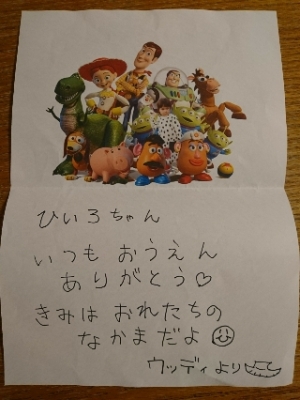 ひいろちゃん
いつも おうえん
ありがとう♡
きみは おれたちの
なかまだよ☺
ウッディより